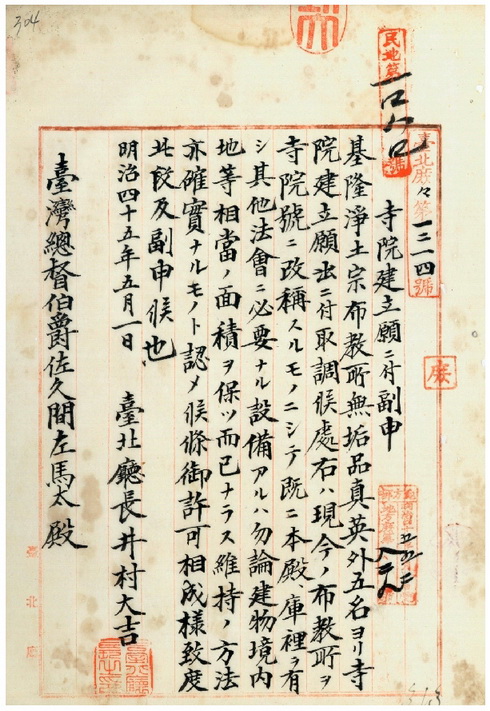 304
民地第一〇八〇號
臺北廳々第一三一四號
寺院建立願ニ付副申
基隆淨土宗布教所無垢品真英外五名ヨリ寺
院建立願出ニ付取調候處右ハ現今ノ布教所ヲ
寺院號ニ改稱スルモノニシテ既ニ本殿庫裡ヲ有
シ其他法會ニ必要ナル設備アルハ勿論建物境内
地等相當ノ面積ヲ保ツ而已ナラス維持ノ方法
亦確實ナルモノト認メ候條御許可相成樣致度
此段及副申候也
明治四十五年五月一日
臺北廳長井村大吉
臺灣總督伯爵佐久間左馬太殿
臺北廳